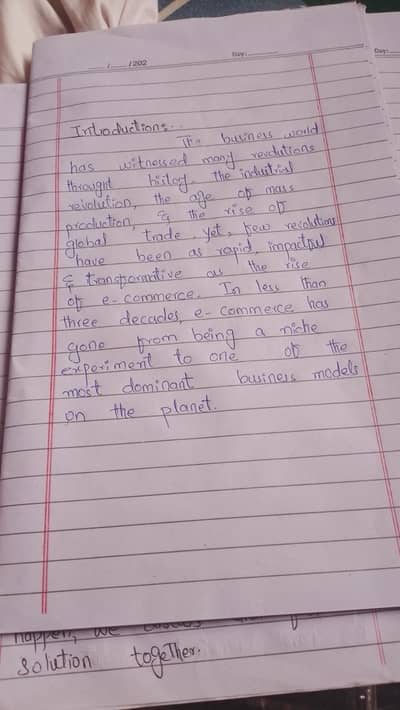 / /202
Day:
Day:
Introduction:-
The business world
has witnessed many revolutions
throught history. The industrial
revolution, the age of mass
production, & the rise of
global trade. Yet, few revolutions
have been as rapid, impactful
& transformative as the rise
of e-commerce. In less than
three decades, e-commerce has
gone from being a niche
experiment to one of the
most dominant business models
on the planet.
happen, we
solution together.